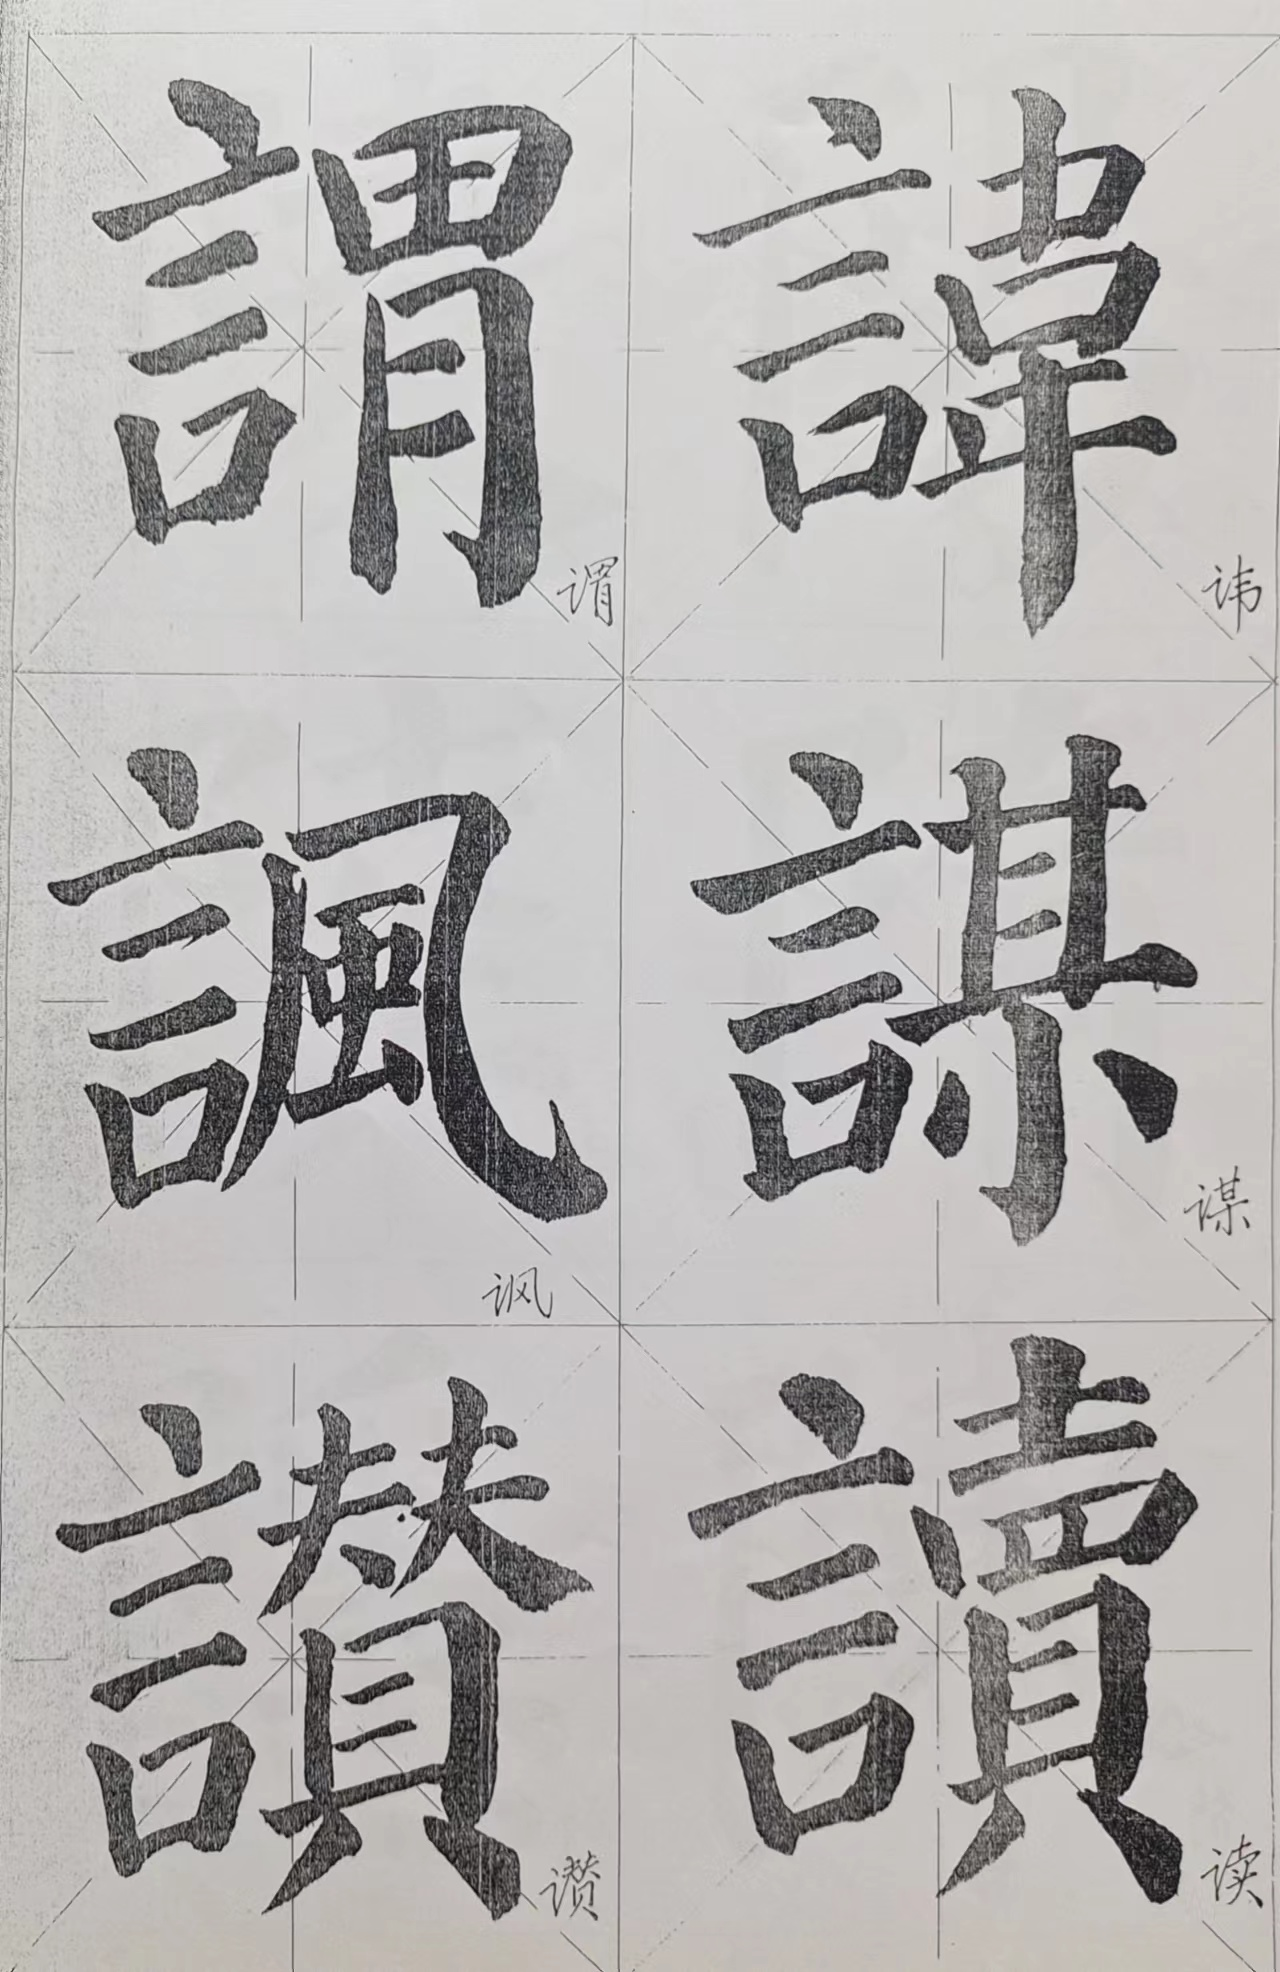 謂 諱
谓 讳
諷 謀
讽 谋
讃 讀
讃 读